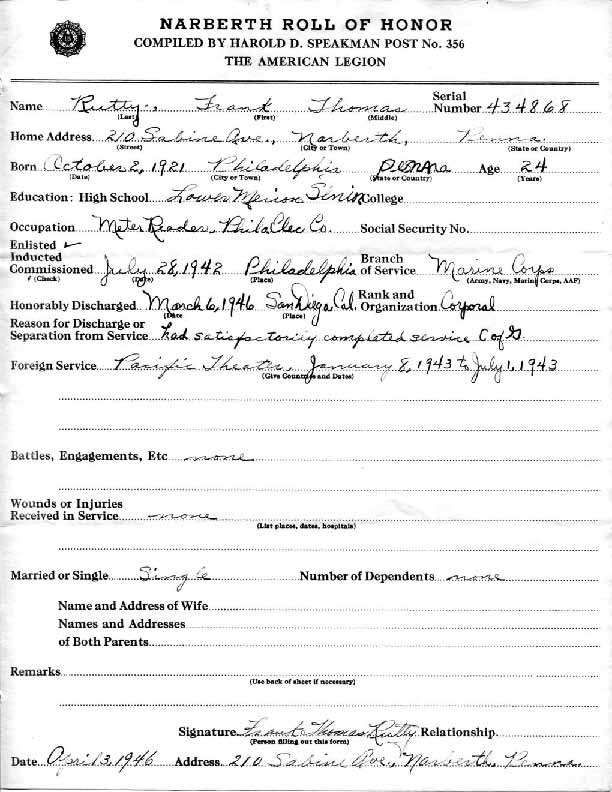 NARBERTH ROLL OF HONOR
COMPILED BY HAROLD D. SPEAKMAN POST No. 356
THE AMERICAN LEGION
Name Rutty, Frank Thomas Serial Number 434868
(Last) (First) (Middle)
Home Address 210 Sabine Ave., Narberth, Penna.
(Street) (City or Town) (State or Country)
Born October 2, 1921 Philadelphia Penna Age 24
(Date) (City or Town) (State or Country) (Years)
Education: High School Lower Merion Senior College
Occupation Meter Reader, Phila Elec Co. Social Security No.
Enlisted ✓
Inducted
Commissioned July 28, 1942 Philadelphia Branch of Service Marine Corps
(Check) (Date) (Place) (Army, Navy, Marine Corps, AAF)
Honorably Discharged March 6, 1946 San Diego, Cal. Rank and Organization Corporal
(Date (Place)
Reason for Discharge or
Separation from Service had satisfactorily completed service C of G.
Foreign Service Pacific Theater, January 8, 1943 to July 1, 1943
(Give Countries and Dates)
Battles, Engagements, Etc none
Wounds or Injuries
Received in Service none
(List places, dates, hospitals)
Married or Single Single Number of Dependents none
Name and Address of Wife
Names and Addresses
of Both Parents
Remarks
(Use back of sheet if necessary)
Signature Frank Thomas Rutty Relationship
(Person filling out this form)
Date April 3, 1946 Address 210 Sabine Ave., Narberth, Penna.